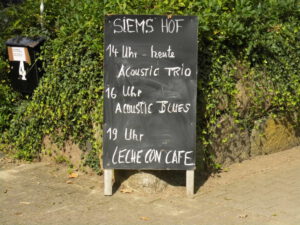 SIEMS HOF
14 Uhr - heute
ACOUSTIC TRIO
16 Uhr
ACOUSTIC BLUES
19 Uhr
LECHE CON CAFE